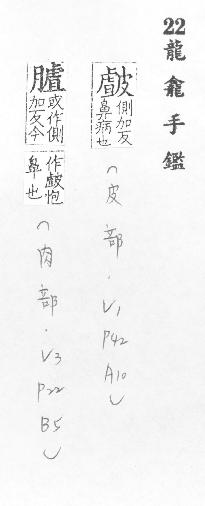 22龍龕手鑑
皻側加反鼻病也(皮部.V1 P42 A10)
䐒或作側加反今作皻皰鼻也(肉部.V3 P22 B5)